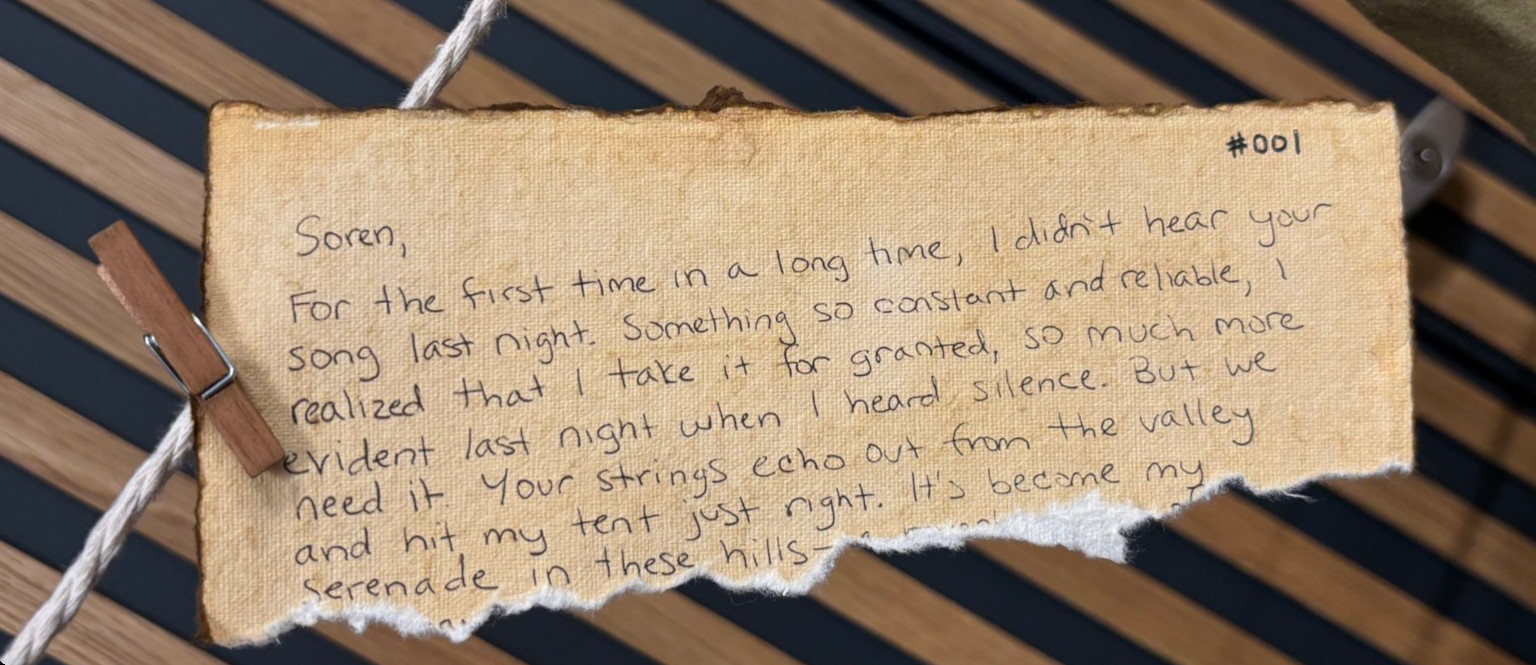 #001
Soren,
For the first time in a long time, I didn't hear your
song last night. Something so constant and reliable, I
realized that I take it for granted, so much more
evident last night when I heard silence. But we
need it. Your strings echo out from the valley
and hit my tent just right. It's become my
serenade in these hills-